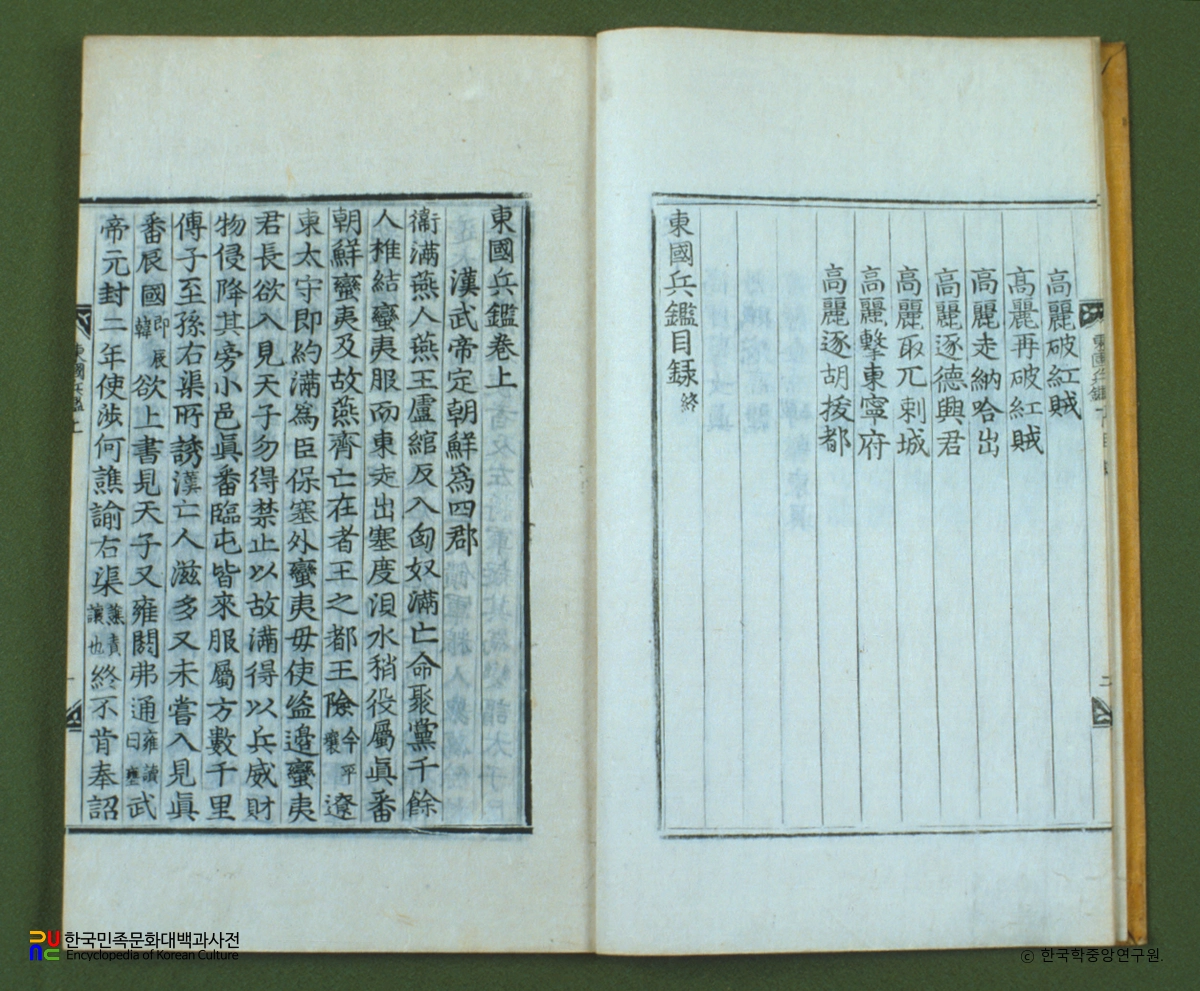 高麗破紅賊
高麗再破紅賊
高麗走納哈出
高麗逐德興君
高麗取兀剌城
高麗擊東寧府
高麗逐胡拔都
東國兵鑑目録 終
東國兵鑑卷上
漢武帝定朝鮮爲四郡
衞滿燕人燕王盧綰反入匈奴滿亡命聚黨千餘
人椎結蠻夷服而東走出塞度浿水稍役屬眞番
朝鮮蠻夷及故燕齊亡在者王之都王險今平壤遼
東太守即約滿爲臣保塞外蠻夷毋使盜邊蠻夷
君長欲入見天子勿得禁止以故滿得以兵威財
物侵降其旁小邑眞番臨屯皆來服屬方數千里
傳子至孫右渠所誘漢亡人滋多又未嘗入見眞
番辰國即辰韓欲上書見天子又雍閼弗通雍讀曰壅武
帝元封二年使渉何譙諭右渠譙責讓也終不肯奉詔
東國兵鑑上
한국민족문화대백과사전
Encyclopedia of Korean Culture
ⓒ 한국학중앙연구원.